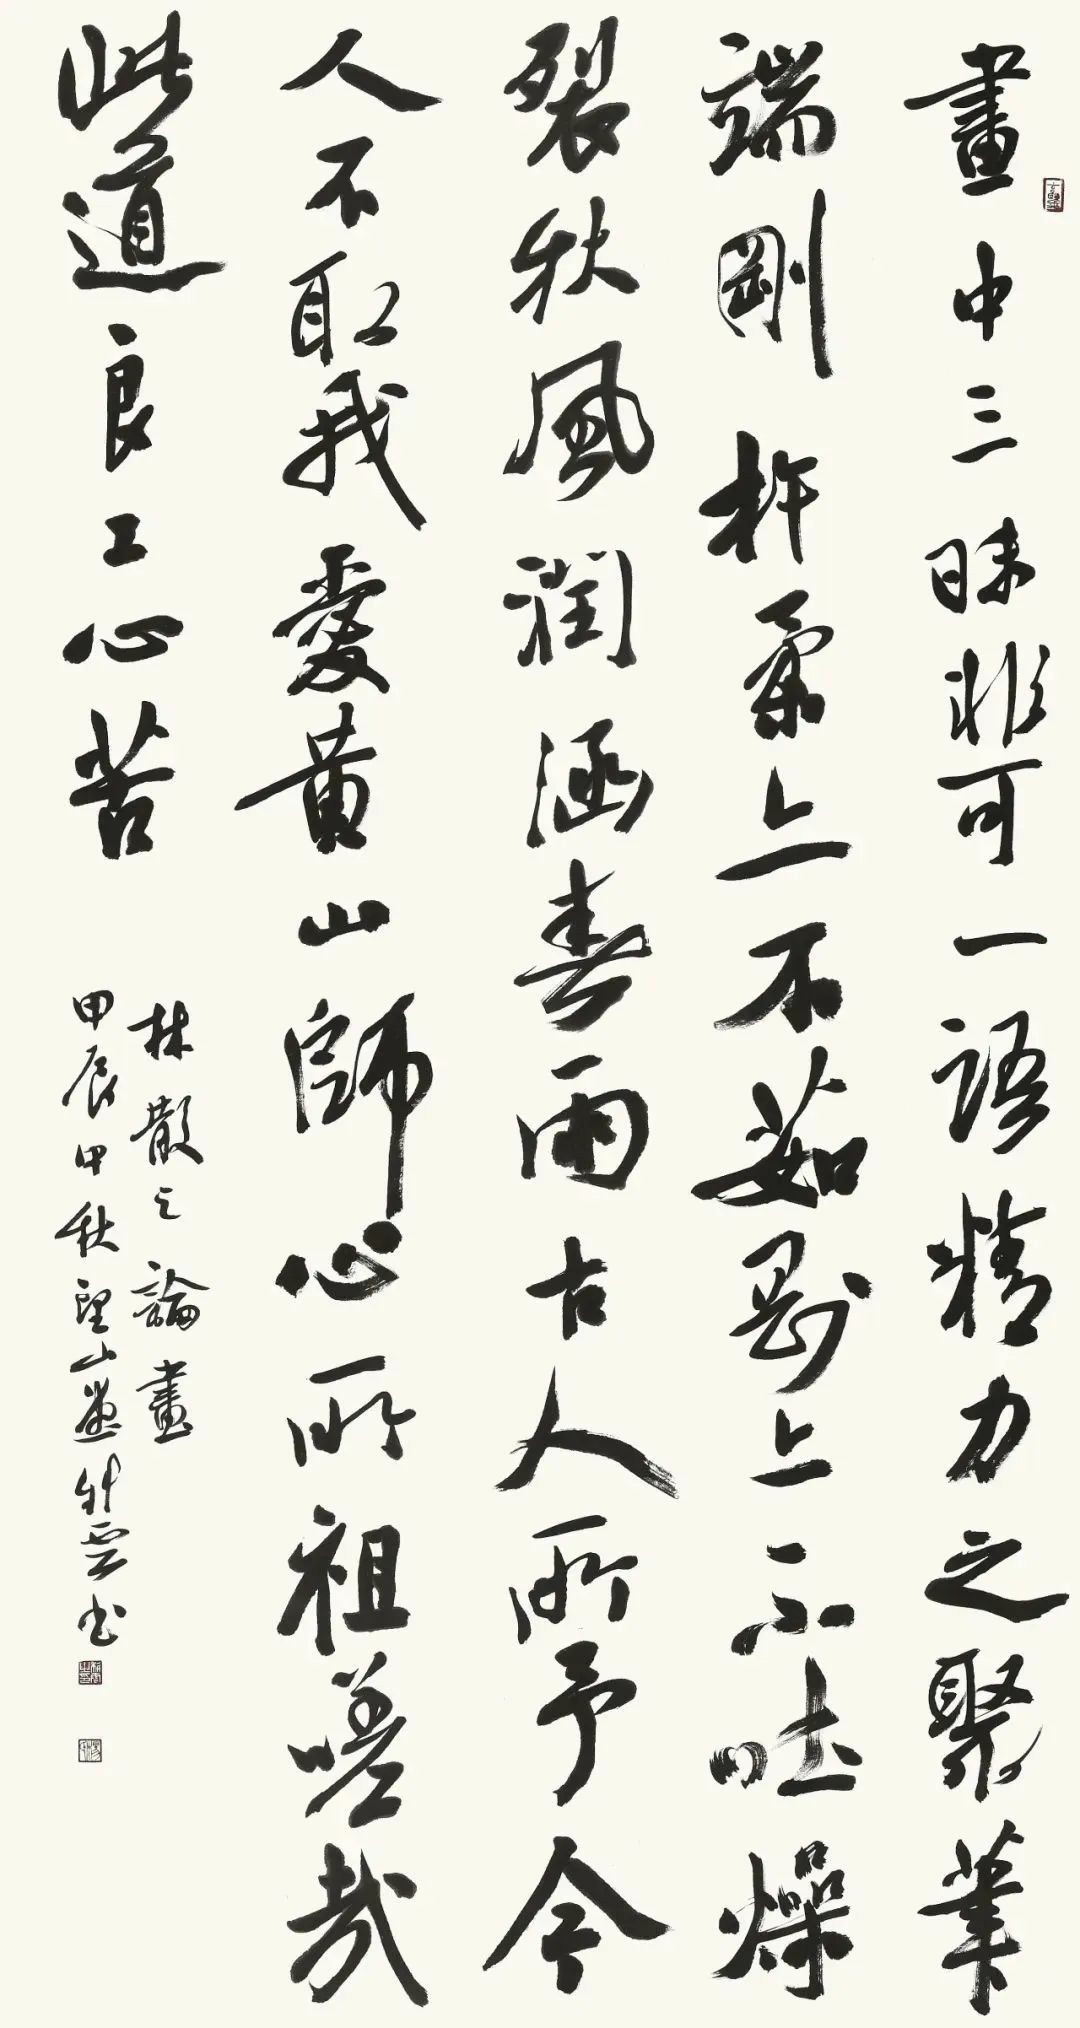 畫中三昧非可一語精力之聚筆
端剛杵柔上不茹剛上不吐燥
裂秋風潤涵春雨古人所予今
人不取我愛黄山師心所祖嗟哉
此道良工心苦
林散之論畫
甲辰中秋望山雲書